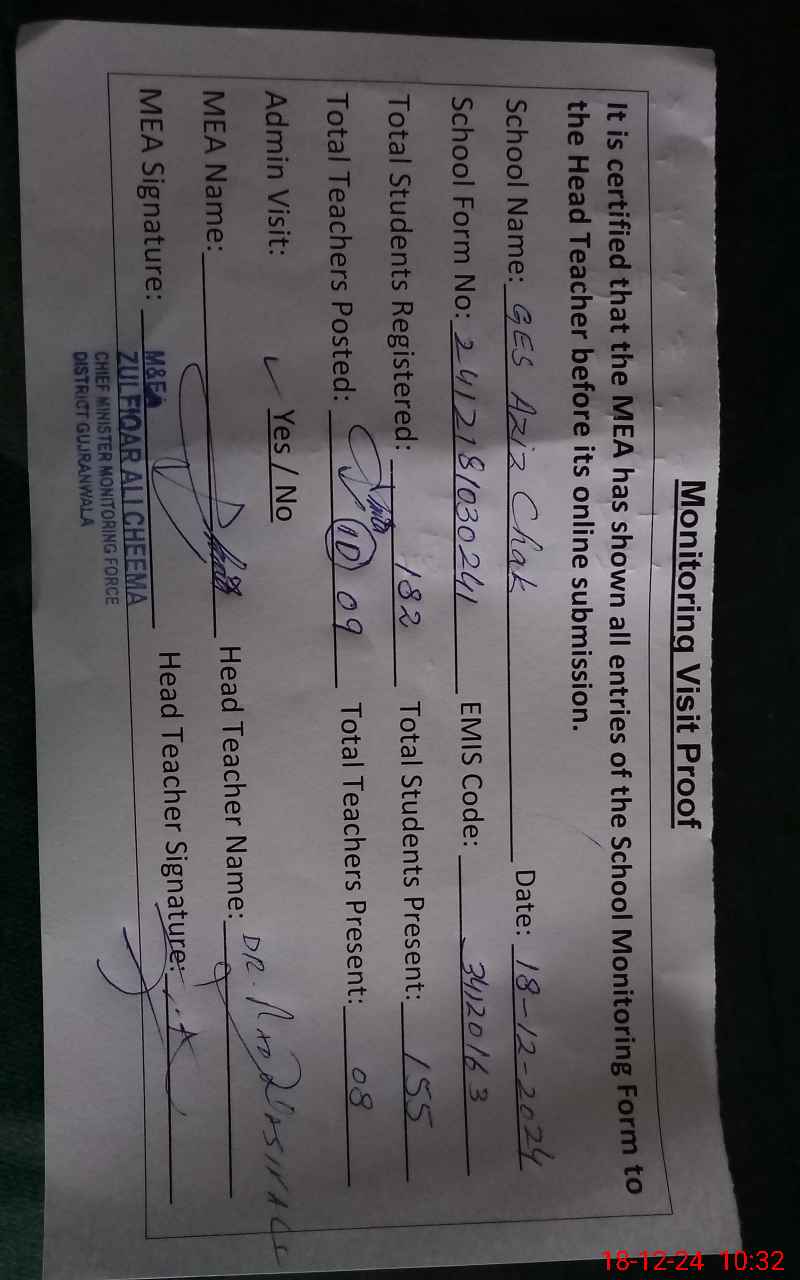 Monitoring Visit Proof
It is certified that the MEA has shown all entries of the School Monitoring Form to
the Head Teacher before its online submission.
School Name: GES Aziz Chak Date: 18-12-2024
School Form No: 2412181030241 EMIS Code: 34120163
Total Students Registered: 182 Total Students Present: 155
Total Teachers Posted: 10 09 Total Teachers Present: 08
Admin Visit: ✓ Yes / No
MEA Name: Head Teacher Name: DR.
MEA Signature: Head Teacher Signature:
M&EA
ZULFIQAR ALI CHEEMA
CHIEF MINISTER MONITORING FORCE
DISTRICT GUJRANWALA
18-12-24 10:32